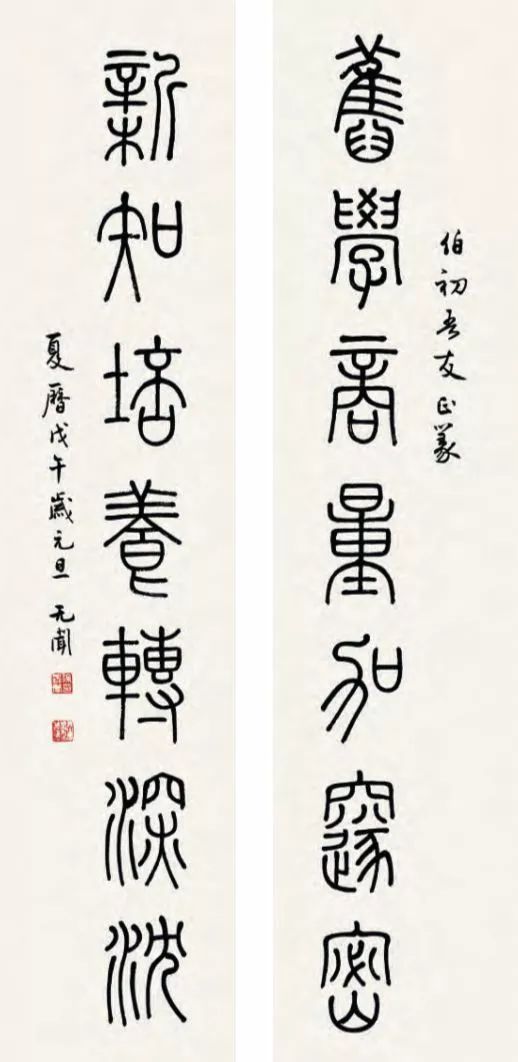 伯初吾友正篆
舊學商量加邃密
新知培養轉深沈
夏曆戊午歲元旦 无聞